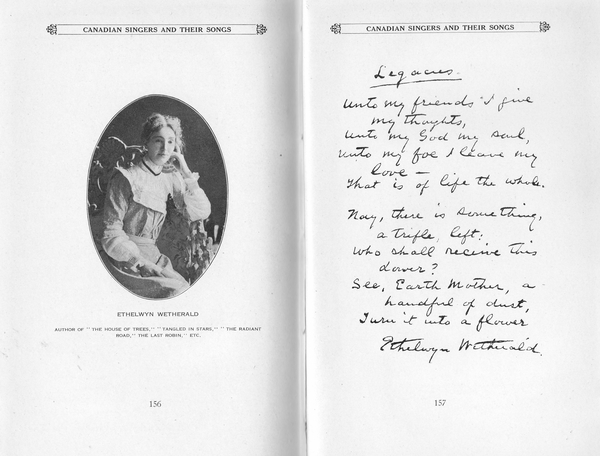 CANADIAN SINGERS AND THEIR SONGS
ETHELWYN WETHERALD
AUTHOR OF "THE HOUSE OF TREES," "TANGLED IN STARS," "THE RADIANT
ROAD," "THE LAST ROBIN," ETC.
156
CANADIAN SINGERS AND THEIR SONGS
Legacies.
Unto my friends I give
my thoughts,
Unto my God my soul,
Unto my foe I leave my
love —
That is of life the whole.
Nay, there is something,
a trifle, left;
Who shall receive this
dower?
See, Earth Mother, a
handful of dust,
Turn it into a flower
Ethelwyn Wetherald.
157